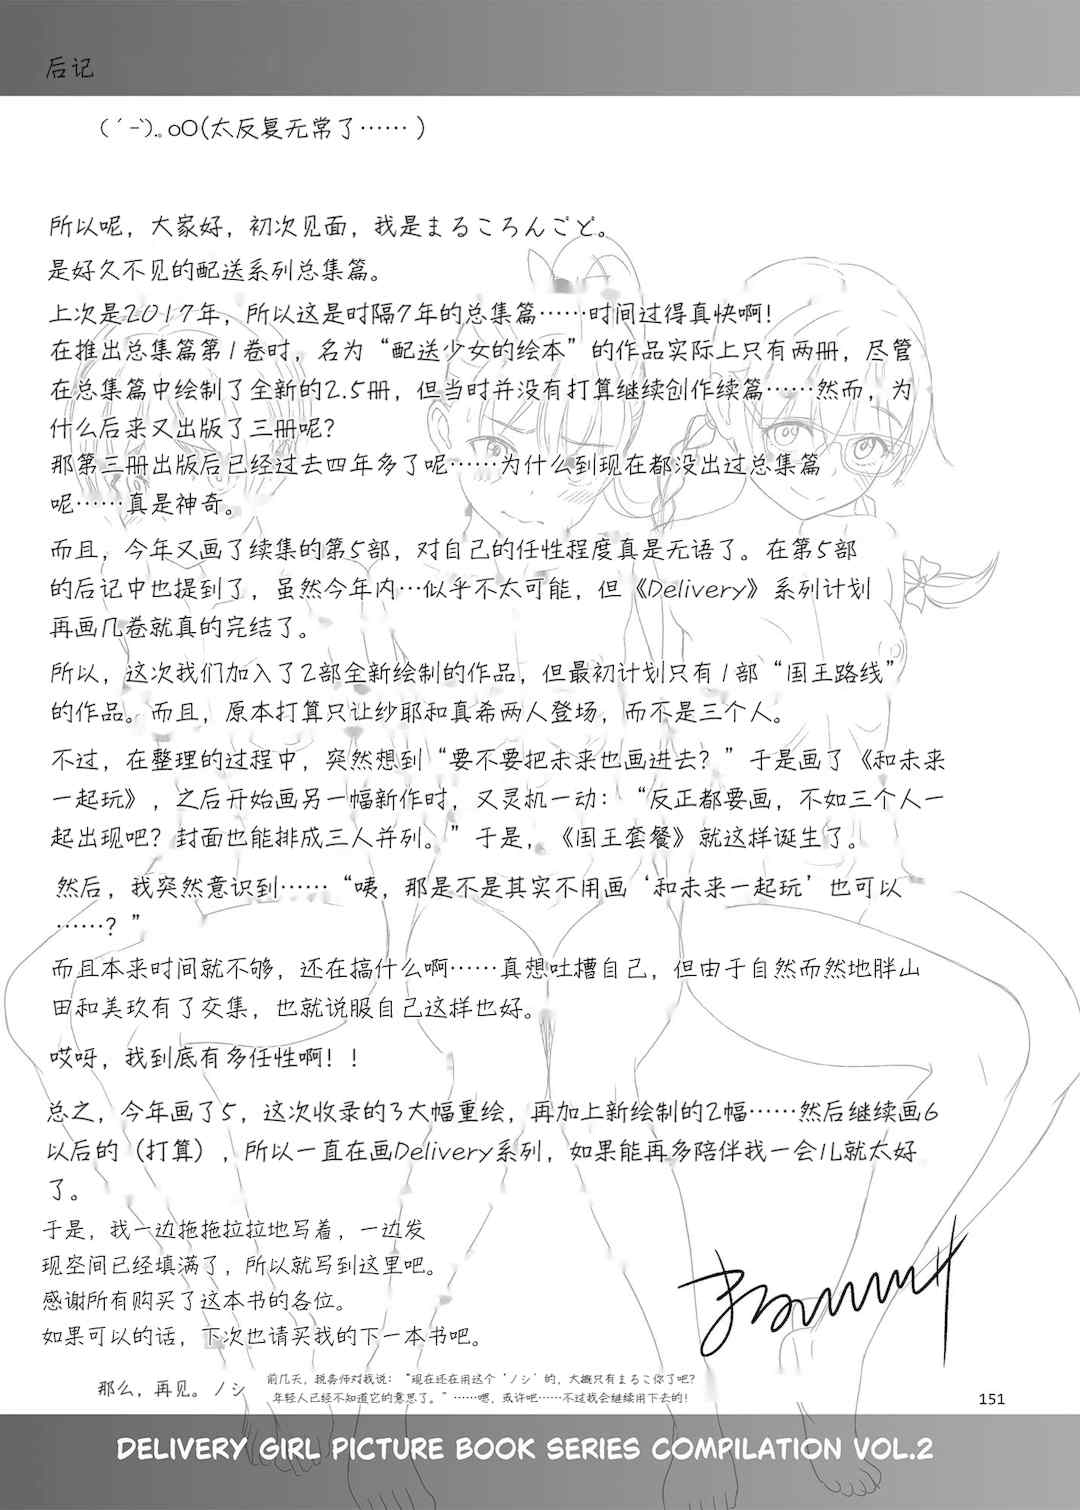 后记
(´-`).。oO(太反复无常了……)
所以呢，大家好，初次见面，我是まるころんごど。
是好久不见的配送系列总集篇。
上次是2017年，所以这是时隔7年的总集篇……时间过得真快啊！
在推出总集篇第1卷时，名为“配送少女的绘本”的作品实际上只有两册，尽管
在总集篇中绘制了全新的2.5册，但当时并没有打算继续创作续篇……然而，为
什么后来又出版了三册呢？
那第三册出版后已经过去四年多了呢……为什么到现在都没出过总集篇
呢……真是神奇。
而且，今年又画了续集的第5部，对自己的任性程度真是无语了。在第5部
的后记中也提到了，虽然今年内…似乎不太可能，但《Delivery》系列计划
再画几卷就真的完结了。
所以，这次我们加入了2部全新绘制的作品，但最初计划只有1部“国王路线”
的作品。而且，原本打算只让纱耶和真希两人登场，而不是三个人。
不过，在整理的过程中，突然想到“要不要把未来也画进去？”于是画了《和未来
一起玩》，之后开始画另一幅新作时，又灵机一动：“反正都要画，不如三个人一
起出现吧？封面也能排成三人并列。”于是，《国王套餐》就这样诞生了。
然后，我突然意识到……“咦，那是不是其实不用画‘和未来一起玩’也可以
……？”
而且本来时间就不够，还在搞什么啊……真想吐槽自己，但由于自然而然地胖山
田和美玖有了交集，也就说服自己这样也好。
哎呀，我到底有多任性啊！！
总之，今年画了5，这次收录的3大幅重绘，再加上新绘制的2幅……然后继续画6
以后的（打算），所以一直在画Delivery系列，如果能再多陪伴我一会儿就太好
了。
于是，我一边拖拖拉拉地写着，一边发
现空间已经填满了，所以就写到这里吧。
感谢所有购买了这本书的各位。
如果可以的话，下次也请买我的下一本书吧。
那么，再见。ノシ
前几天，税务师对我说：“现在还在用这个‘ノシ’的，大概只有まるこ你了吧？
年轻人已经不知道它的意思了。”……嗯，或许吧……不过我会继续用下去的！
151
DELIVERY GIRL PICTURE BOOK SERIES COMPILATION VOL.2